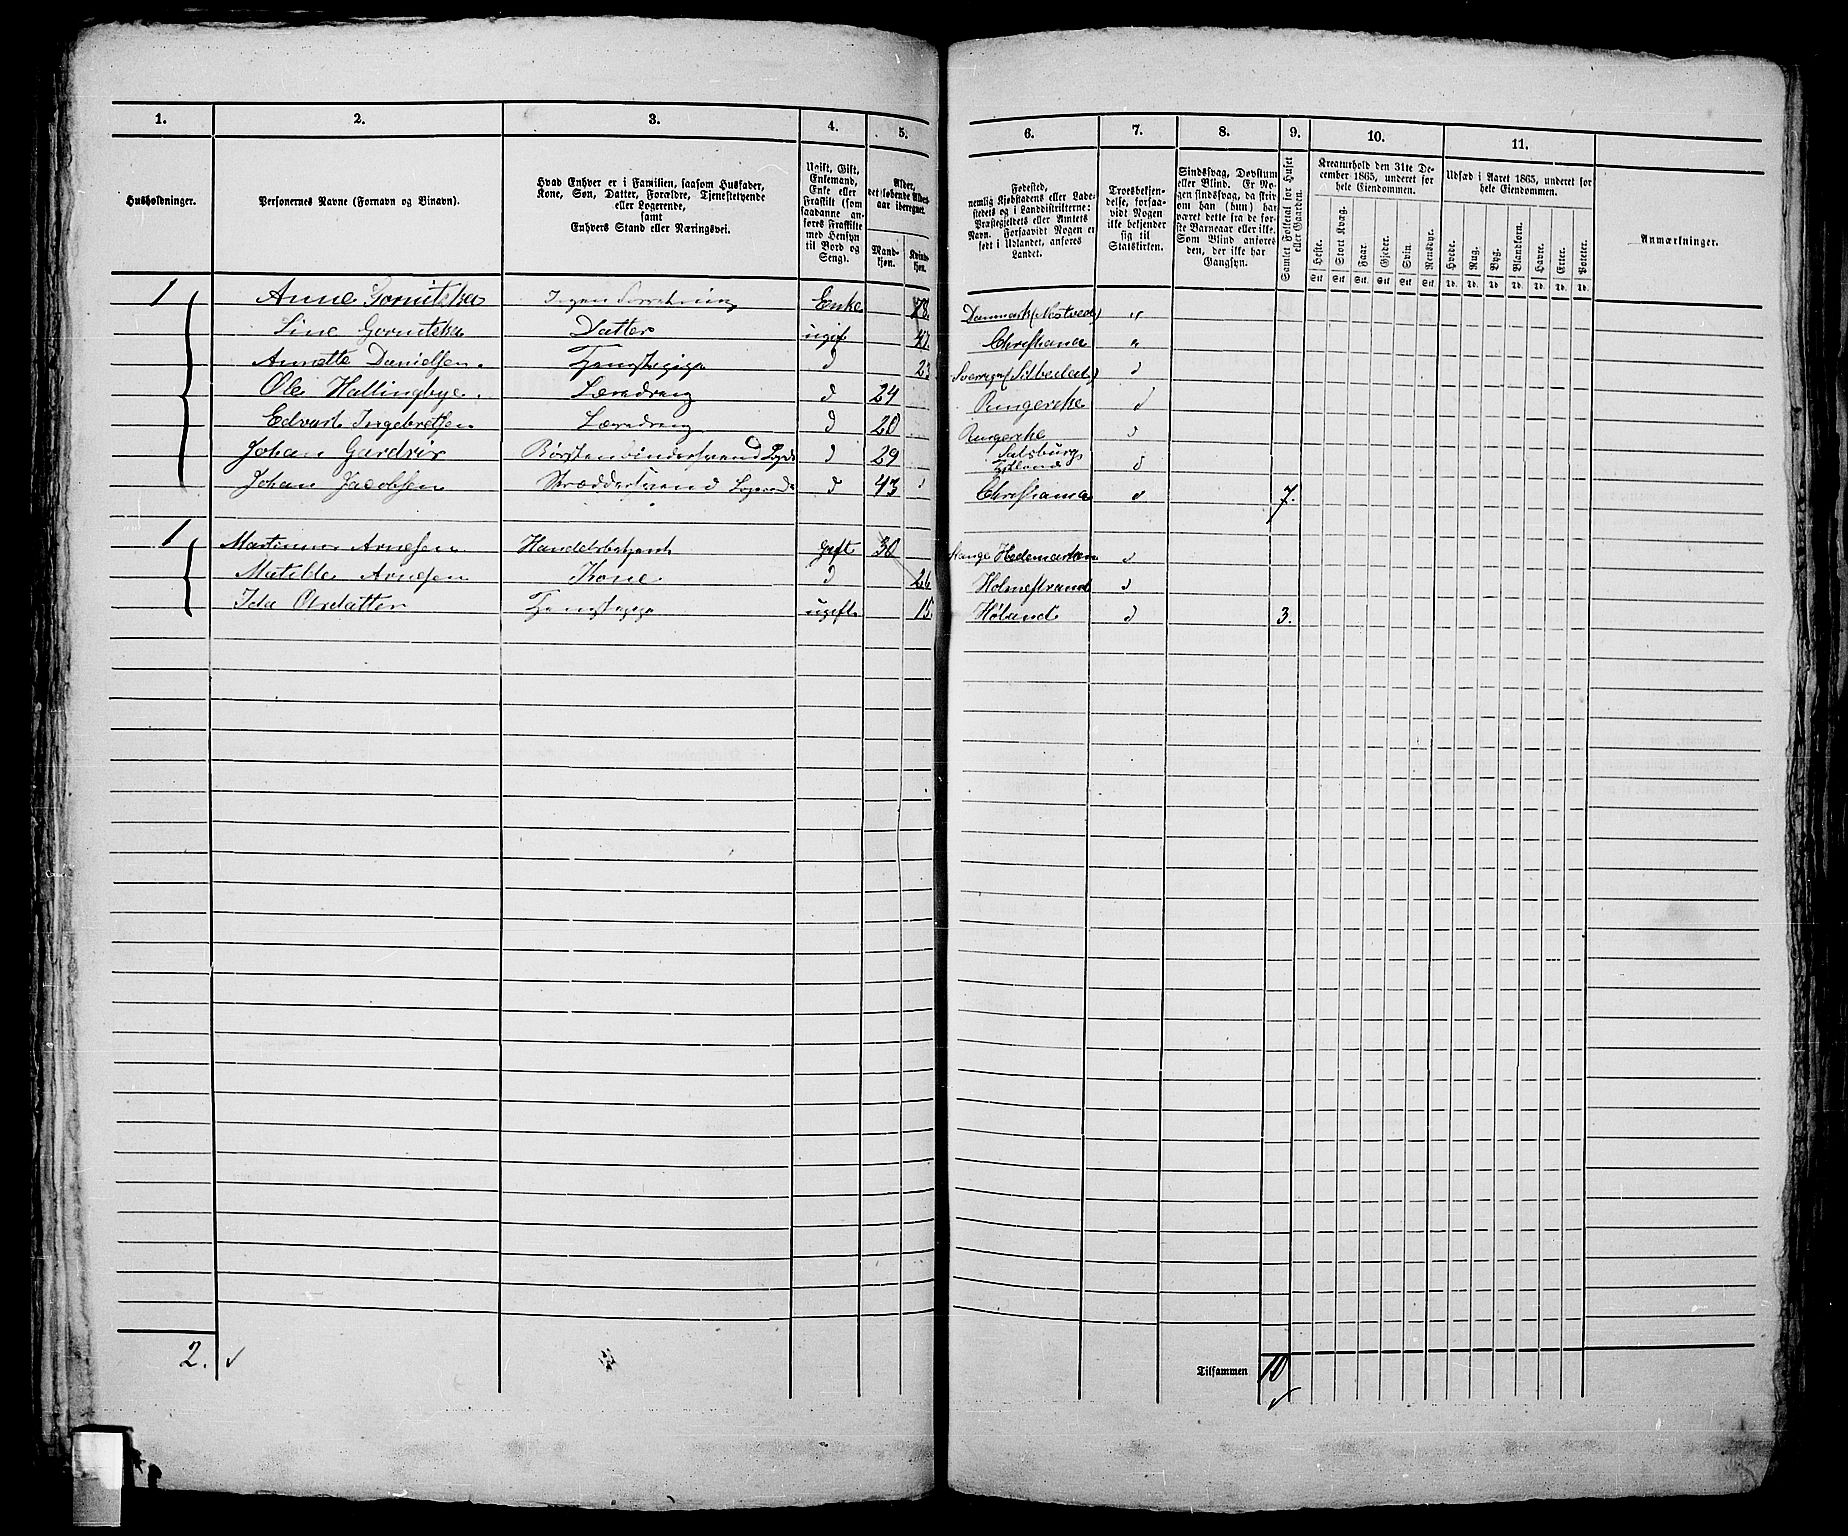 1. 2. 3. 4. 5. 6. 7. 8. 9. 10. 11.
Husholdninger.
Personernes Navne (Fornavn og Binavn).
Hvad Enhver er i Familien, saasom Husfader,
Kone, Søn, Datter, Forældre, Tjenestetyende
eller Logerende,
samt
Enhvers Stand eller Næringsvei.
Ugift, Gift,
Enkemand,
Enke eller
Fraskilt (som
saadanne an-
føres Fraskilte
med Hensyn
til Bord og
Seng).
Alder,
det løbende Alders-
aar iberegnet.
Mand-
kjøn.
Kvinde-
kjøn.
Fødested,
nemlig Kjøbstadens eller Lade-
stedets og i Landdistrikterne:
Præstegjeldets eller Amtets
Navn. Forsaavidt Nogen er
født i Udlandet, anføres
Landet.
Troesbekjen-
delse, forsaa-
vidt Nogen
ikke bekjender
sig til
Statskirken.
Sindssvag, Døvstum
eller Blind. Er No-
gen sindssvag, da skriv
om han (hun) har
været dette fra de før-
ste Barneaar eller ikke.
Som Blind anføres
den, der ikke har
Gangsyn.
Samlet Folketal for Huset
eller Gaarden.
Kreaturhold den 31te De-
cember 1865, underet for
hele Eiendommen.
Heste. Stort Kvæg. Faar. Gjeder. Svin. Rensdyr.
Stk. Stk. Stk. Stk. Stk. Stk.
Udsæd i Aaret 1865, underet for
hele Eiendommen.
Hvede. Rug. Byg. Blandkorn. Havre. Erter. Poteter.
Td. Td. Td. Td. Td. Td. Td.
Anmærkninger.
1 Anne Enke 78. Danmark (Nestved) "
Line Datter ugif 47. Christiania "
Annette Danielsen Tjenestepige d 23 d
Ole Hallingbye Læredreng d 24 Ringerike d
Edvart Ingebretsen Læredreng d 20 Ringerike d
Johan Børstenbindersvend d 29 Salsburg
Tydskland d
Johan Jacobsen Skræddersvend Logerende d 43 Christiania d 7.
1 Martinus Arnesen Gift 30 Stange Hedemarken d
Matilde Arnesen Kone d 26 Holmestrand d
Ida Olsdatter Tjenestepige ugift 15 Høland d 3.
2.
Tilsammen 10